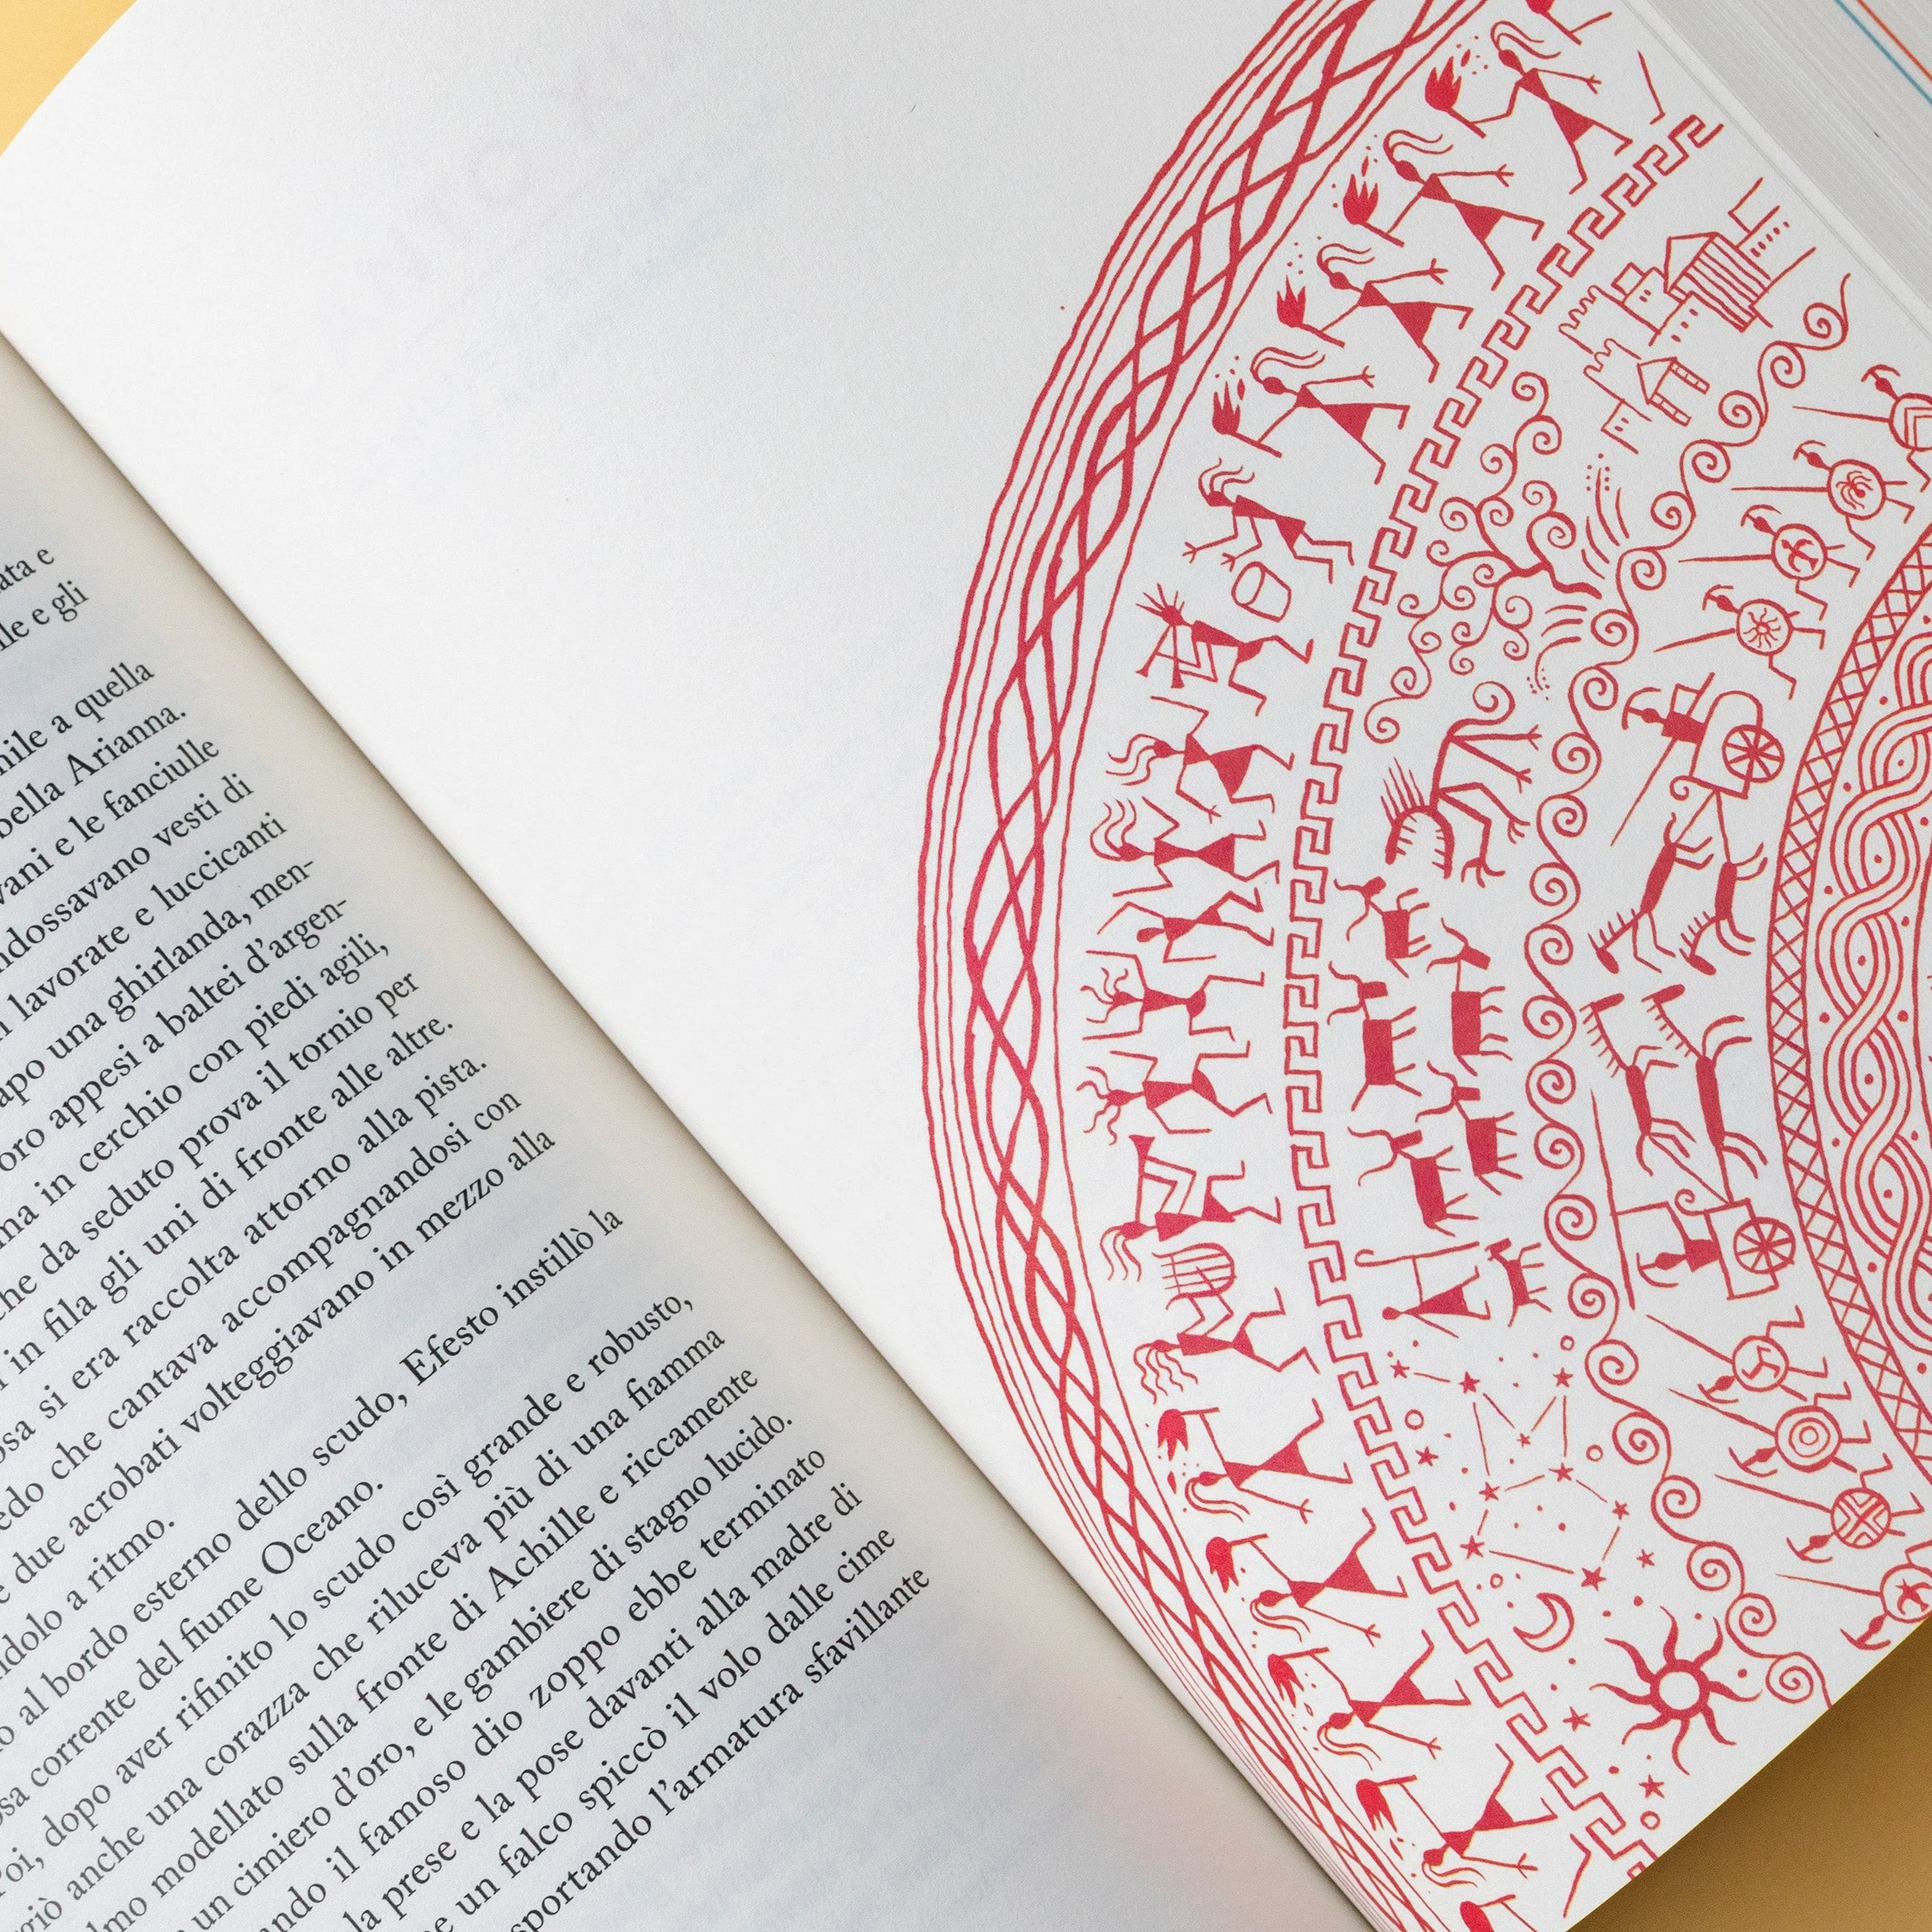 e
e gli
a quella
bella Arianna.
e le fanciulle
vesti di
lavorate e luccicanti
una ghirlanda, men-
oro appesi a baltei d'argen-
in cerchio con piedi agili,
che da seduto prova il tornio per
in fila gli uni di fronte alle altre.
si era raccolta attorno alla pista.
che cantava accompagnandosi con
due acrobati volteggiavano in mezzo alla
a ritmo.
al bordo esterno dello scudo, Efesto instillò la
corrente del fiume Oceano.
dopo aver rifinito lo scudo così grande e robusto,
anche una corazza che riluceva più di una fiamma
modellato sulla fronte di Achille e riccamente
un cimiero d'oro, e le gambiere di stagno lucido.
il famoso dio zoppo ebbe terminato
la prese e la pose davanti alla madre di
un falco spiccò il volo dalle cime
l'armatura sfavillante